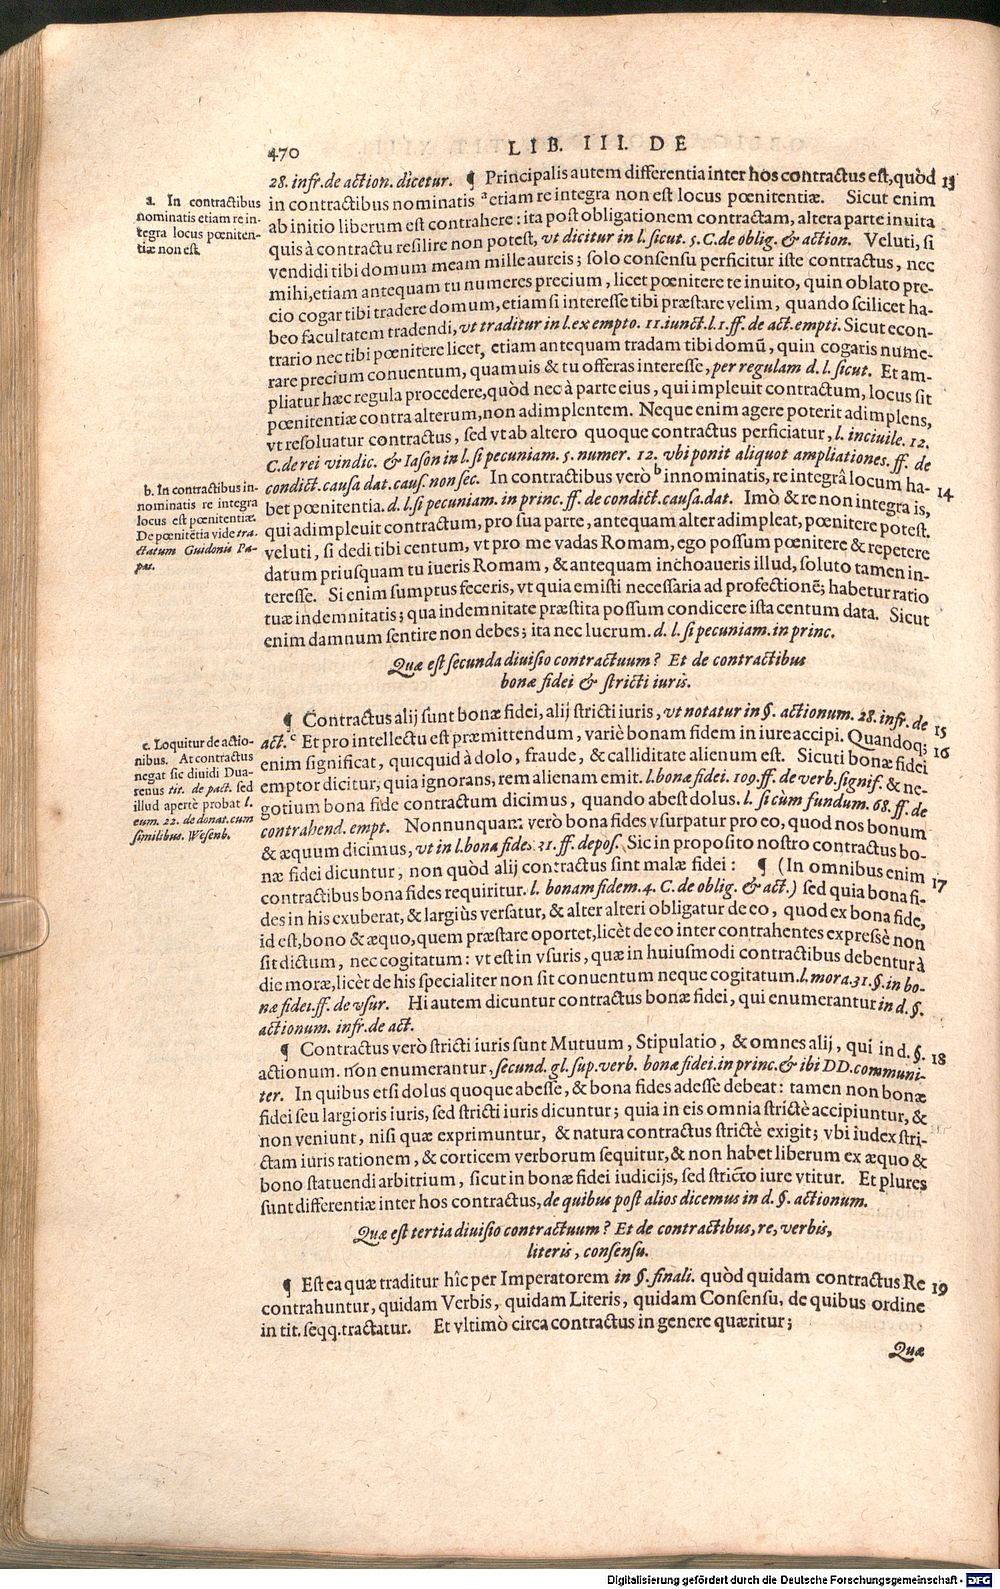 470
LIB. III. DE
28. infr. de action. dicetur. ¶ Principalis autem differentia inter hos contractus est, quòd 13
in contractibus nominatis ᵃ etiam re integra non est locus pœnitentiæ. Sicut enim
ab initio liberum est contrahere: ita post obligationem contractam, altera parte inuita
quis à contractu resilire non potest, vt dicitur in l. sicut. 5. C. de oblig. & action. Veluti, si
vendidi tibi domum meam mille aureis; solo consensu perficitur iste contractus, nec
mihi, etiam antequam tu numeres precium, licet pœnitere te inuito, quin oblato pre-
cio cogar tibi tradere domum, etiamsi interesse tibi præstare velim, quando scilicet ha-
beo facultatem tradendi, vt traditur in l. ex empto. 11. iunct. l. 1. ff. de act. empti. Sicut econ-
trario nec tibi pœnitere licet, etiam antequam tradam tibi domũ, quin cogaris nume-
rare precium conuentum, quamuis & tu offeras interesse, per regulam d. l. sicut. Et am-
pliatur hæc regula procedere, quòd nec à parte eius, qui impleuit contractum, locus sit
pœnitentiæ contra alterum, non adimplentem. Neque enim agere poterit adimplens,
vt resoluatur contractus, sed vt ab altero quoque contractus perficiatur, l. inciuile. 12.
C. de rei vindic. & Iason in l. si pecuniam. 5. numer. 12. vbi ponit aliquot ampliationes. ff. de
condict. causa dat. caus. non sec. In contractibus verò ᵇ innominatis, re integrâ locum ha- 14
bet pœnitentia. d. l. si pecuniam. in princ. ff. de condict. causa. dat. Imò & re non integra is,
qui adimpleuit contractum, pro sua parte, antequam alter adimpleat, pœnitere potest.
veluti, si dedi tibi centum, vt pro me vadas Romam, ego possum pœnitere & repetere
datum priusquam tu iueris Romam, & antequam inchoaueris illud, soluto tamen in-
teresse. Si enim sumptus feceris, vt quia emisti necessaria ad profectionẽ; habetur ratio
tuæ indemnitatis; qua indemnitate præstita possum condicere ista centum data. Sicut
enim damnum sentire non debes; ita nec lucrum. d. l. si pecuniam. in princ.
a. In contractibus
nominatis etiam re in-
tegra locus pœniten-
tiæ non est.
b. In contractibus in-
nominatis re integra
locus est pœnitentiæ.
De pœnitẽtia vide tra-
ctatum Guidonis Pa-
pas.
Quæ est secunda diuisio contractuum? Et de contractibus
bonæ fidei & stricti iuris.
¶ Contractus alij sunt bonæ fidei, alij stricti iuris, vt notatur in §. actionum. 28. infr. de 15
act. ᶜ Et pro intellectu est præmittendum, variè bonam fidem in iure accipi. Quandoq; 16
enim significat, quicquid à dolo, fraude, & calliditate alienum est. Sicuti bonæ fidei
emptor dicitur, quia ignorans, rem alienam emit. l. bonæ fidei. 109. ff. de verb. signif. & ne-
gotium bona fide contractum dicimus, quando abest dolus. l. si cùm fundum. 68. ff. de
contrahend. empt. Nonnunquam verò bona fides vsurpatur pro eo, quod nos bonum
& æquum dicimus, vt in l. bona fides. 31. ff. depos. Sic in proposito nostro contractus bo-
næ fidei dicuntur, non quòd alij contractus sint malæ fidei: ¶ (In omnibus enim 17
contractibus bona fides requiritur. l. bonam fidem. 4. C. de oblig. & act.) sed quia bona fi-
des in his exuberat, & largiùs versatur, & alter alteri obligatur de eo, quod ex bona fide,
id est, bono & æquo, quem præstare oportet, licèt de eo inter contrahentes expressè non
sit dictum, nec cogitatum: vt est in vsuris, quæ in huiusmodi contractibus debentur à
die moræ, licèt de his specialiter non sit conuentum neque cogitatum. l. mora. 31. §. in bo-
næ fidei. ff. de vsur. Hi autem dicuntur contractus bonæ fidei, qui enumerantur in d. §.
actionum. infr. de act.
c. Loquitur de actio-
nibus. At contractus
negat sic diuidi Dua-
renus tit. de pact. sed
illud apertè probat l.
eum. 22. de donat. cum
similibus. Wesenb.
¶ Contractus verò stricti iuris sunt Mutuum, Stipulatio, & omnes alij, qui in d. §. 18
actionum. non enumerantur, secund. gl. sup. verb. bonæ fidei. in princ. & ibi DD. communi-
ter. In quibus etsi dolus quoque abesse, & bona fides adesse debeat: tamen non bonæ
fidei seu largioris iuris, sed stricti iuris dicuntur; quia in eis omnia strictè accipiuntur, &
non veniunt, nisi quæ exprimuntur, & natura contractus strictè exigit; vbi iudex stri-
ctam iuris rationem, & corticem verborum sequitur, & non habet liberum ex æquo &
bono statuendi arbitrium, sicut in bonæ fidei iudicijs, sed stricto iure vtitur. Et plures
sunt differentiæ inter hos contractus, de quibus post alios dicemus in d. §. actionum.
Quæ est tertia diuisio contractuum? Et de contractibus, re, verbis,
literis, consensu.
¶ Est ea quæ traditur hîc per Imperatorem in §. finali. quòd quidam contractus Re 19
contrahuntur, quidam Verbis, quidam Literis, quidam Consensu, de quibus ordine
in tit. seqq. tractatur. Et vltimò circa contractus in genere quæritur;
Quæ
Digitalisierung gefördert durch die Deutsche Forschungsgemeinschaft - DFG